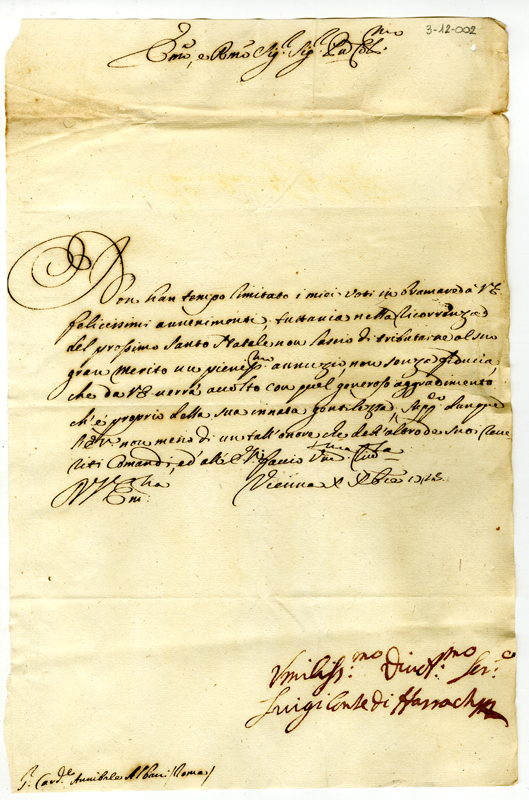 3-12-002
Em.o, e Rmo Sig.r Sig.r Pn Col.mo
Non han tempo limitato i miei voti in bramare à V E
felicissimi avvenimenti, tuttavia nella ricorrenza
del prossimo Santo Natale non lascio di tributarne al suo
gran Merito un pieniss.mo annunzio non senza fiducia,
che da V E verrà accolto con quel generoso aggradimento,
ch'è proprio della sua innata gentilezza, Supp.co dunque
V E non meno di un tall'onore che dell'altro de suoi
riti Comandi, ed all' E V faccio
V E
Em:
Vienna X Xbre
Umiliss.mo Divot.mo Ser.e
Luigi Conte di Harrach
S.r Card.le Annibale Albani (Roma)